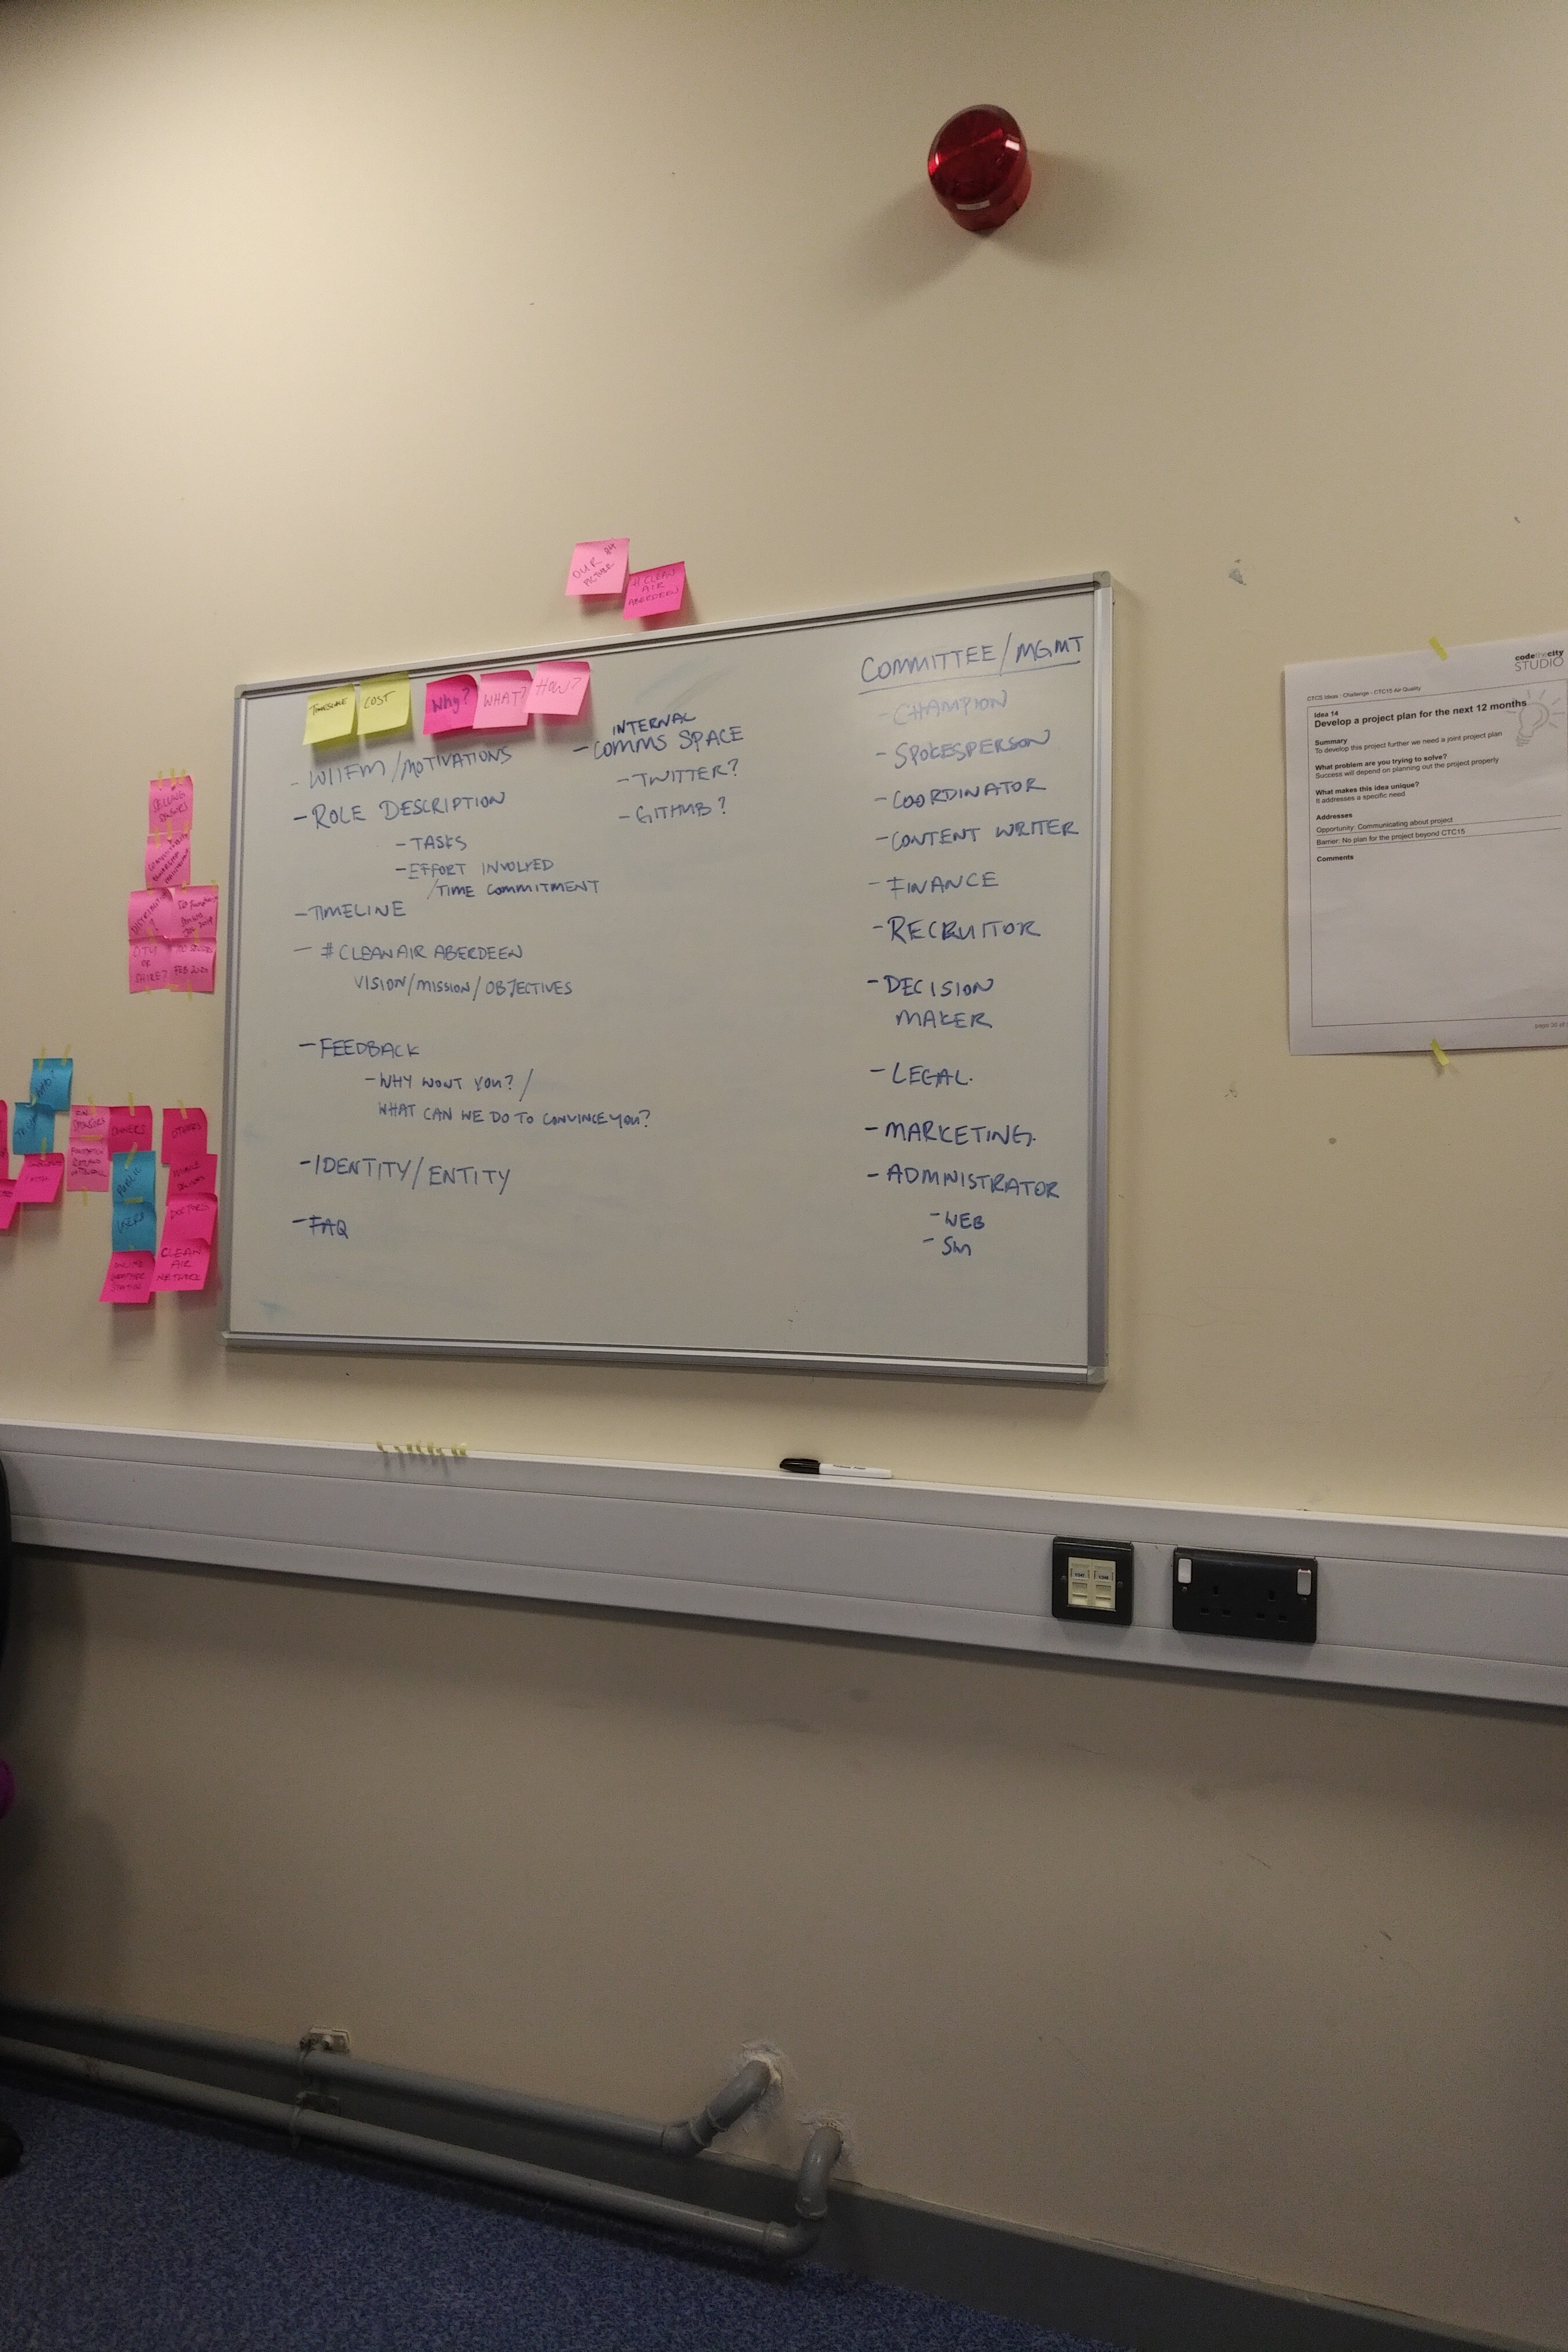 OUR
PICTURE
# CLEAN
AIR
ABERDEEN
TIMESCALE
COST
Why?
WHAT?
HOW?
- WIIFM/MOTIVATIONS
- ROLE DESCRIPTION
- TASKS
- EFFORT INVOLVED
/TIME COMMITMENT
- TIMELINE
- #CLEANAIR ABERDEEN
VISION/MISSION/OBJECTIVES
- FEEDBACK
- WHY WONT YOU? /
WHAT CAN WE DO TO CONVINCE YOU?
- IDENTITY/ENTITY
- FAQ
INTERNAL
- COMMS SPACE
- TWITTER?
- GITHUB?
COMMITTEE/MGMT
- CHAMPION
- SPOKESPERSON
- COORDINATOR
- CONTENT WRITER
- FINANCE
- RECRUITOR
- DECISION
MAKER
- LEGAL.
- MARKETING.
- ADMINISTRATOR
- WEB
- SM
CITY
OR
SHIRE?
FEB 2020
PUBLIC
USERS
OTHERS
DOCTORS
CLEAN
AIR
NETWORK
ONLINE
WEATHER
STATION
codethecity
STUDIO
CTCS Ideas : Challenge - CTC15 Air Quality
Idea 14
Develop a project plan for the next 12 months
Summary
To develop this project further we need a joint project plan
What problem are you trying to solve?
Success will depend on planning out the project properly
What makes this idea unique?
It addresses a specific need
Addresses
Opportunity: Communicating about project
Barrier: No plan for the project beyond CTC15
Comments